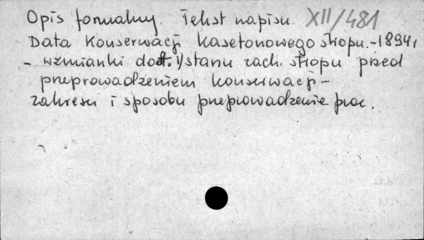 Opis formalny. Tekst napisu. XII/481
Data Konserwacji Kasetonowego stropu. - 1894,
- wzmianki dot. 1/stanu zach. stropu przed
przeprowadzeniem konserwacji -
zakresu i sposobu przeprowadzenia prac.